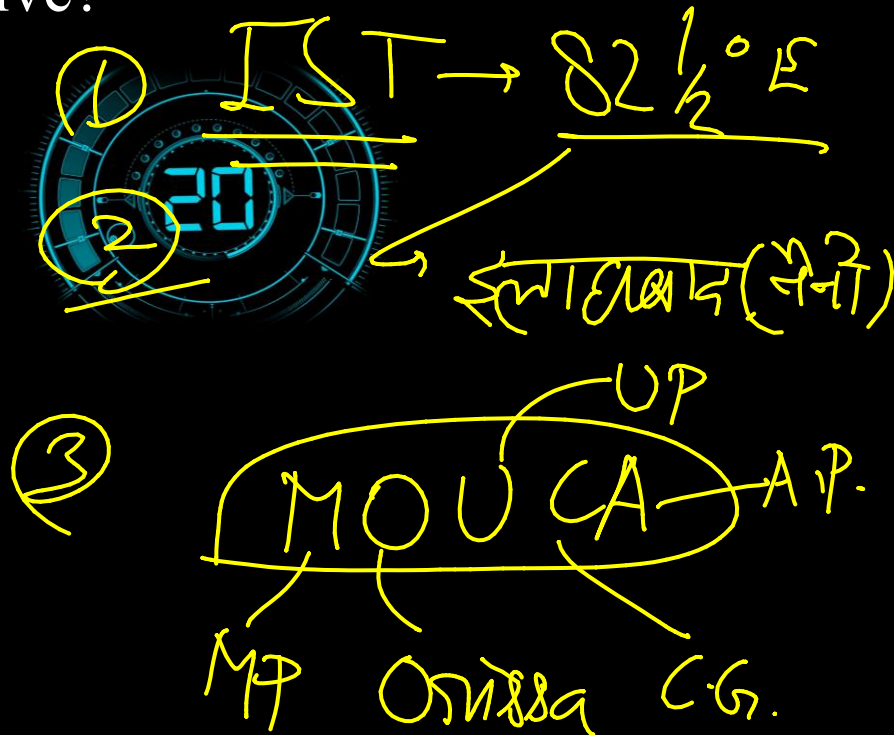 ① IST → 82 1/2° E
20
② इलाहाबाद (नैनी)
UP
③ MOUCA A.P.
MP Orissa C.G.